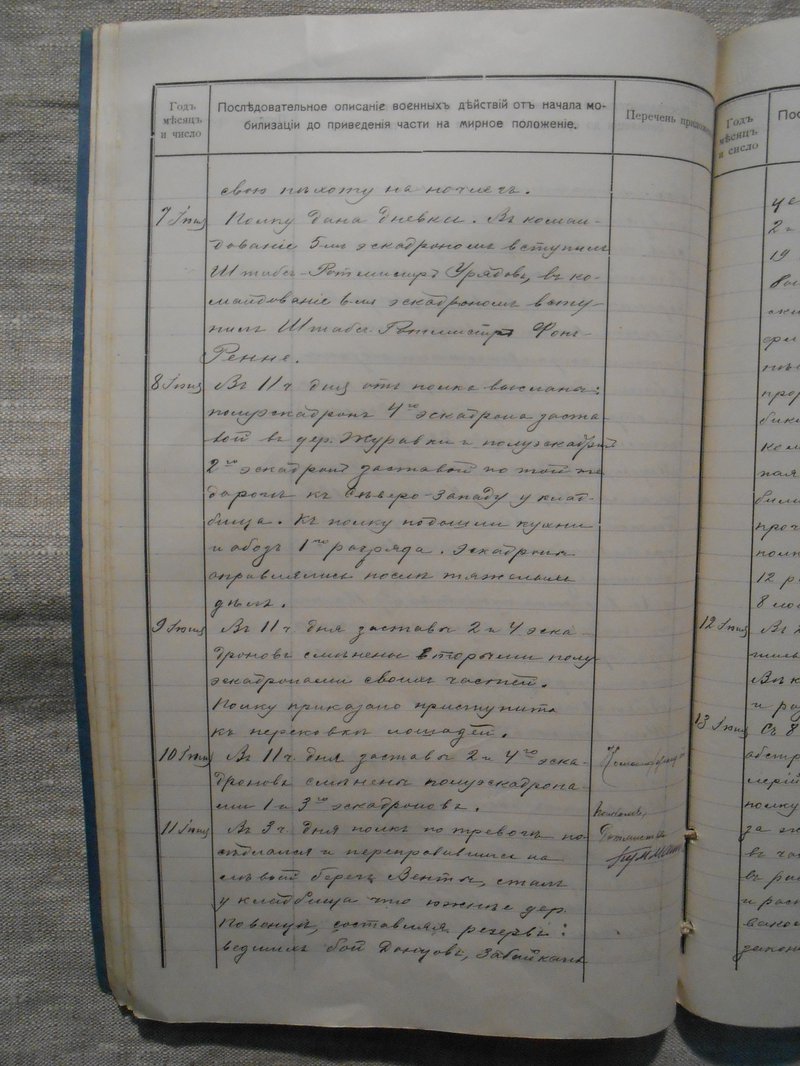 Годъ
мѣсяцъ
и число
Послѣдовательное описаніе военныхъ дѣйствій отъ начала мо-
билизаціи до приведенія части на мирное положеніе.
Перечень прилож
свою пѣхоту на ночлегъ.
7 Іюня Полку дана дневка. Въ коман-
дованіе 5-мъ эскадрономъ вступилъ
Штабсъ-Ротмистръ Урядовъ, въ ко-
мандованіе 6-мъ эскадрономъ всту-
пилъ Штабсъ-Ротмистръ Фонъ-
Ренне.
8 Іюня Въ 11 ч. дня отъ полка высланы:
полуэскадронъ 4го эскадрона заста-
вой въ дер. Журавки и полуэскадронъ
2го эскадрона заставой по той же
дорогѣ къ Сѣверо-Западу у клад-
бища. Къ полку подошли кухни
и обозъ 1го разряда. Эскадроны
оправлялись послѣ тяжелыхъ
дѣлъ.
9 Іюня Въ 11 ч. дня заставы 2 и 4 эска-
дроновъ смѣнены вторыми полу-
эскадронами своихъ частей.
Полку приказано приступить
къ перековкѣ лошадей.
10 Іюня Въ 11 ч. дня заставы 2 и 4го эска-
дроновъ смѣнены полуэскадрона-
ми 1 и 3го эскадроновъ.
11 Іюня Въ 3 ч. дня полкъ по тревогѣ по-
сѣдлался и переправившись на
лѣвый берегъ Венты, сталъ
у кладбища что южнѣе дер.
составляя резервъ:
ведшихъ бой Донцовъ, Забайкаль
Ротмистръ
Годъ
мѣсяцъ
и число
Пос
2 и
19
12 р
8 ло
12 Іюня
и ра
13 Іюня Съ 8
полку
за
въ ча
въ ра
и расп